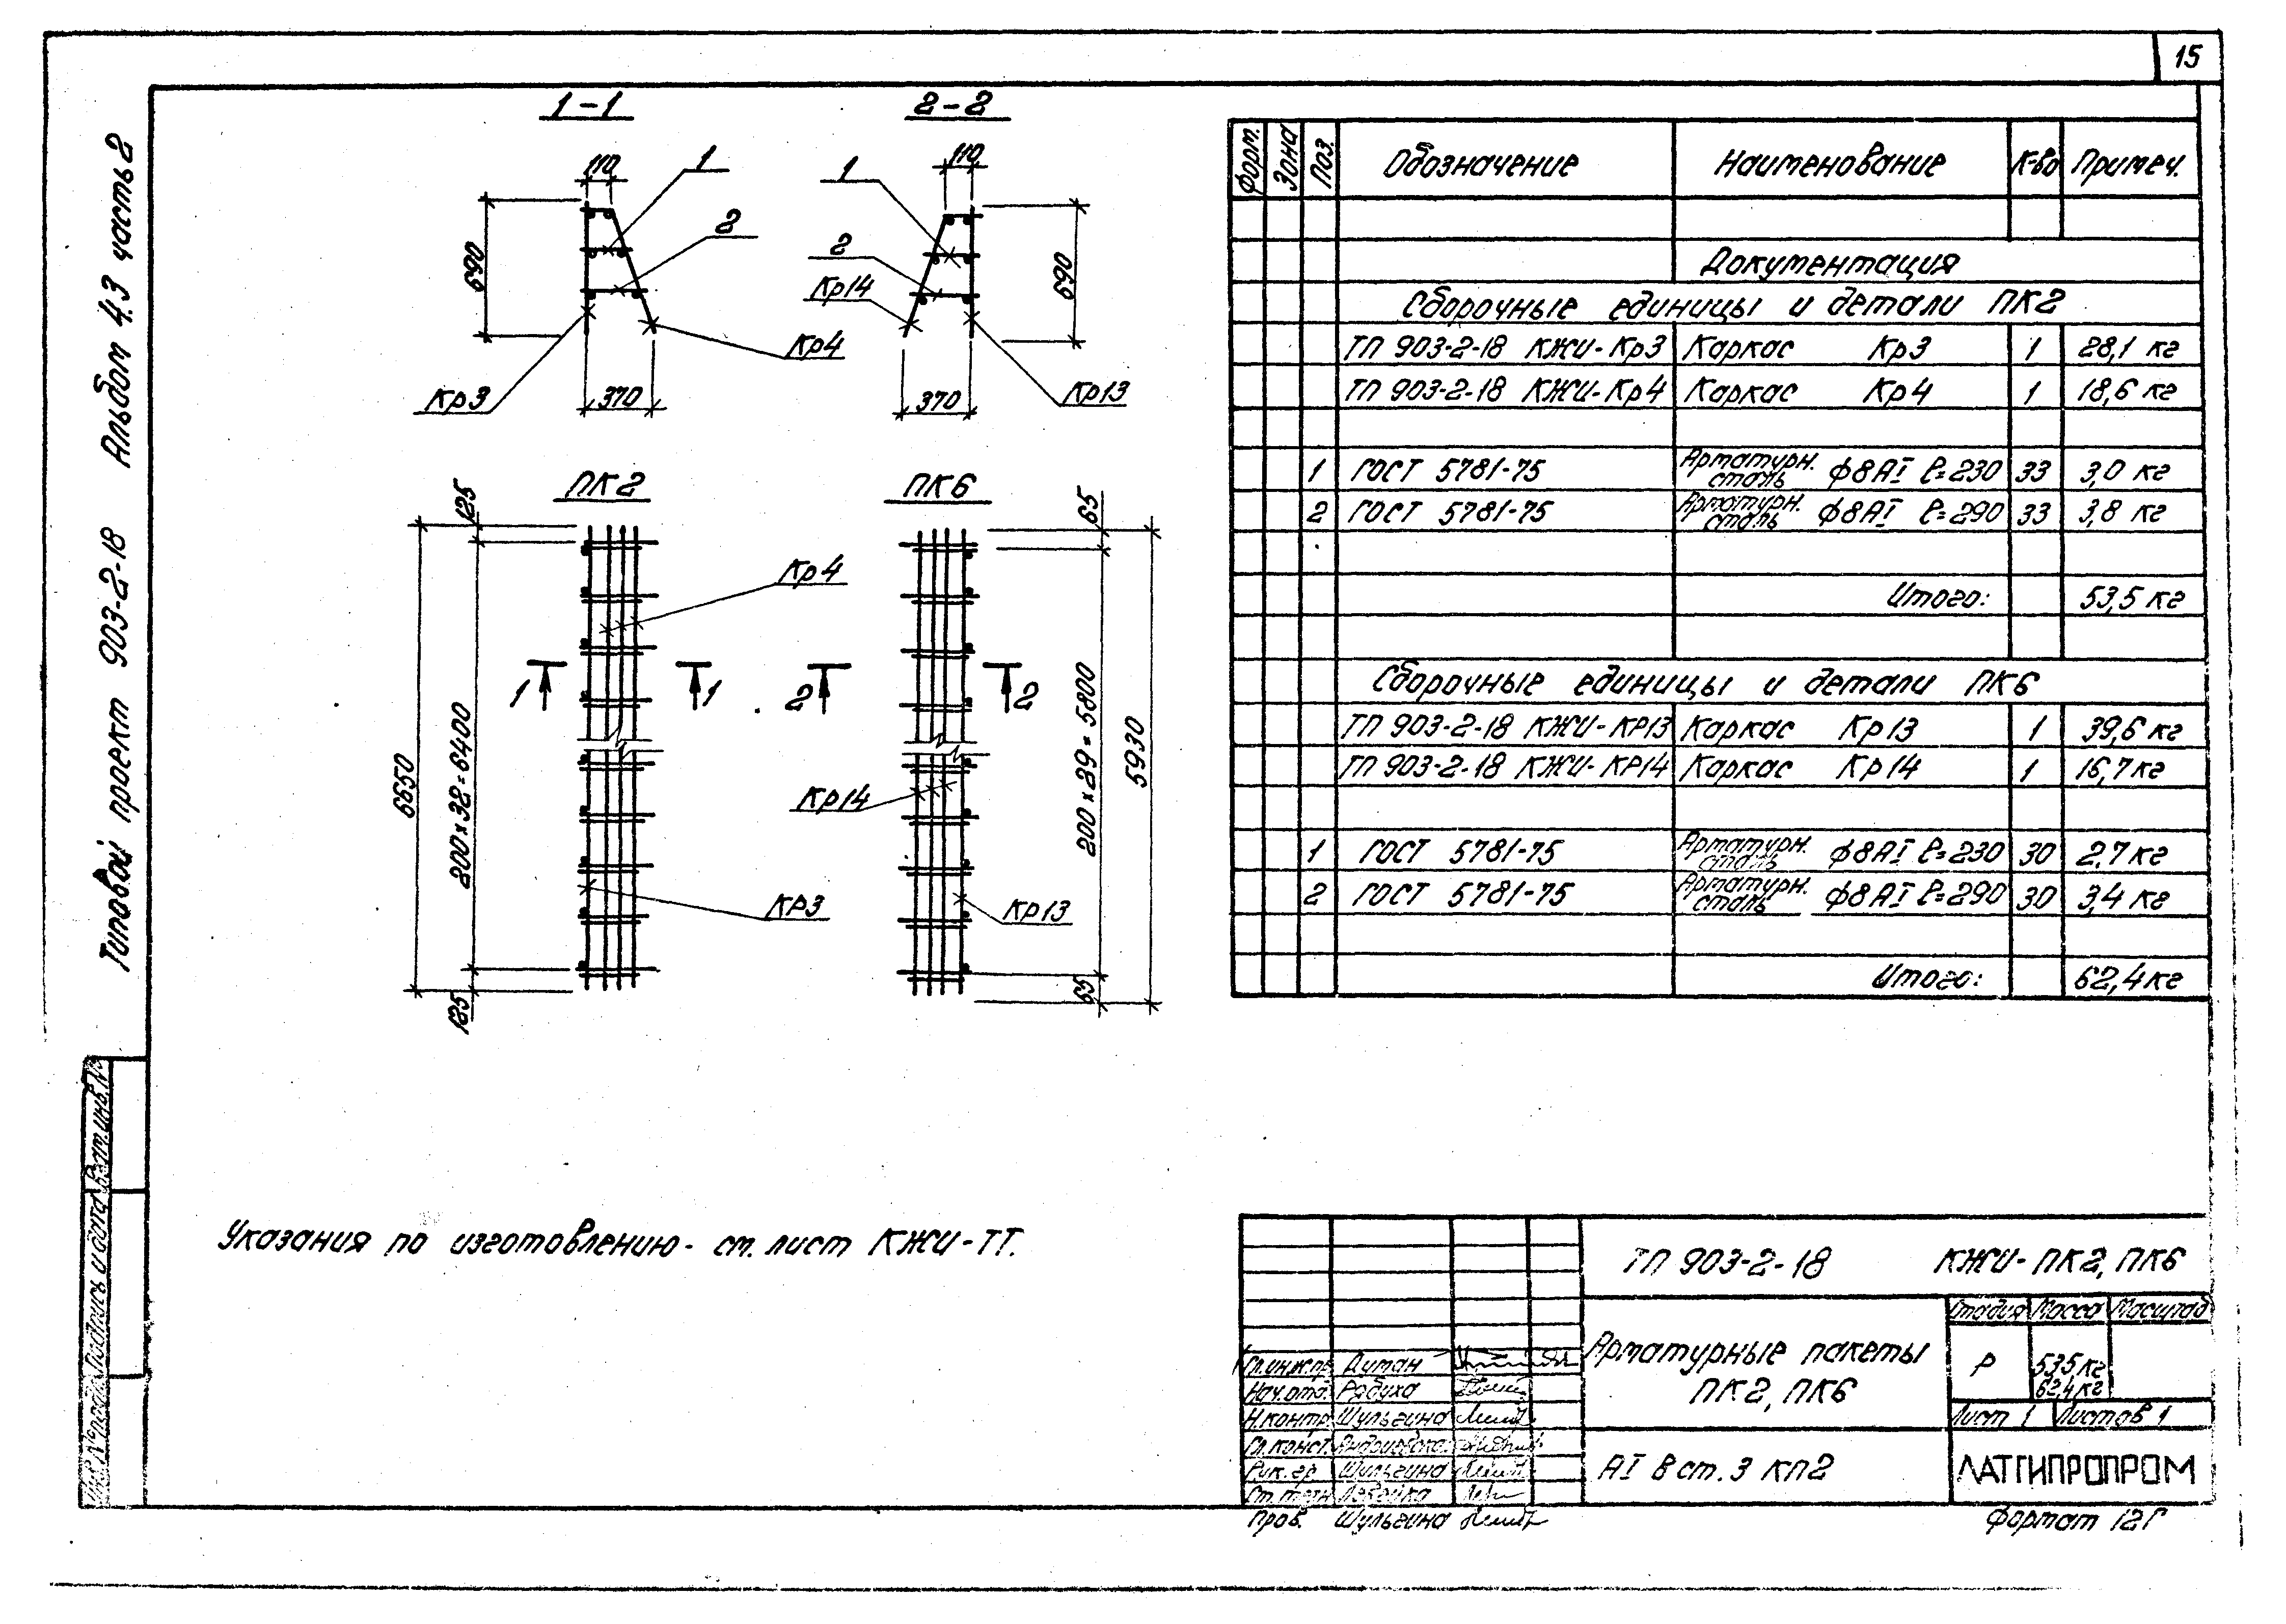 15
Типовой проект 903-2-18 Альбом 4.3 часть 2
1-1
2-2
110
1
2
690
Кр3
Кр4
370
110
1
2
Кр14
690
370
Кр13
ПК2
ПК6
125
6650
200×32=6400
125
Кр4
1 1
КР3
65
200×29=5800
5930
65
2 2
Кр14
Кр13
Форм. Зона Поз. Обозначение Наименование К-во Примеч.
Документация
Сборочные единицы и детали ПК2
ТП 903-2-18 КЖИ-Кр3 Каркас Кр3 1 28,1 кг
ТП 903-2-18 КЖИ-Кр4 Каркас Кр4 1 18,6 кг
1 ГОСТ 5781-75 Арматурн. сталь ф8АI ℓ=230 33 3,0 кг
2 ГОСТ 5781-75 Арматурн. сталь ф8АI ℓ=290 33 3,8 кг
Итого: 53,5 кг
Сборочные единицы и детали ПК6
ТП 903-2-18 КЖИ-КР13 Каркас Кр13 1 39,6 кг
ТП 903-2-18 КЖИ-КР14 Каркас Кр14 1 16,7 кг
1 ГОСТ 5781-75 Арматурн. сталь ф8АI ℓ=230 30 2,7 кг
2 ГОСТ 5781-75 Арматурн. сталь ф8АI ℓ=290 30 3,4 кг
Итого: 62,4 кг
Указания по изготовлению - см. лист КЖИ-ТТ.
Взам. инв. №
Подпись и дата
Инв. № подл.
ТП 903-2-18 КЖИ-ПК2, ПК6
Арматурные пакеты
ПК2, ПК6
Стадия Масса Масштаб
Р 53,5 кг
62,4 кг
Лист 1 Листов 1
АI в ст. 3 кп2
ЛАТГИПРОПРОМ
Гл.инж.пр. Дитан
Нач.отд. Рябуха
Н.контр. Шульгина
Гл.конст.
Рук.гр. Шульгина
Ст.техн.
Пров. Шульгина
Формат 12Г